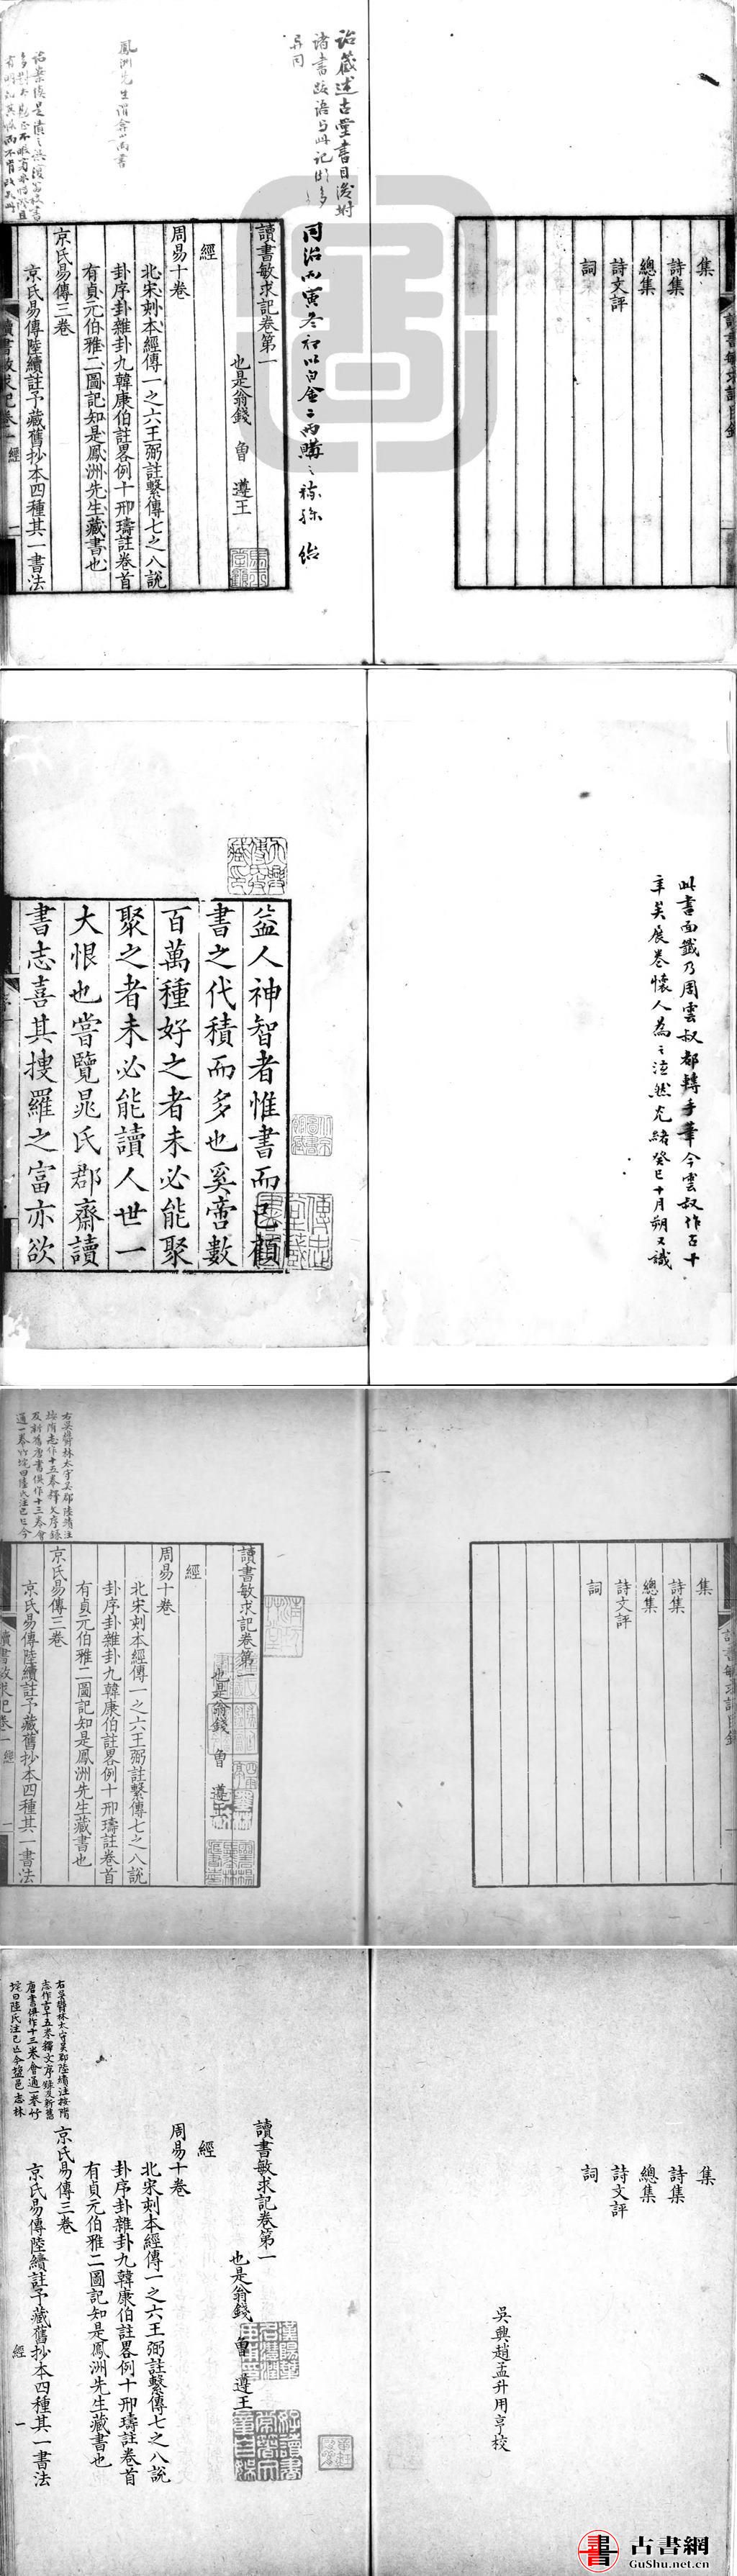 集
詩集
總集
詩文評
詞
詒藏述古堂書目後坿
諸書跋語与此記微多
異同
同治丙寅冬初以白金二兩購之
鳳洲先生謂弇山尚書
讀書敏求記卷第一
也是翁錢 曾 遵王
經
周易十卷
北宋刻本經傳一之六王弼註繫傳七之八說
卦序卦雜卦九韓康伯註畧例十邢璹註卷首
有貞元伯雅二圖記知是鳳洲先生藏書也
京氏易傳三卷
京氏易傳陸績註予藏舊抄本四種其一書法
讀書敏求記卷一 經 一
此書面籤乃周雲叔都轉手筆今雲叔作古十
年矣展卷懷人為之泫然光緒癸巳十月朔又識
益人神智者惟書而已顧
書之代積而多也奚啻數
百萬種好之者未必能聚
聚之者未必能讀人世一
大恨也嘗覽晁氏郡齋讀
書志喜其搜羅之富亦欲
集
詩集
總集
詩文評
詞
讀書敏求記卷第一
也是翁錢 曾 遵王
經
周易十卷
北宋刻本經傳一之六王弼註繫傳七之八說
卦序卦雜卦九韓康伯註畧例十邢璹註卷首
有貞元伯雅二圖記知是鳳洲先生藏書也
京氏易傳三卷
京氏易傳陸績註予藏舊抄本四種其一書法
右吳鬱林太守吳郡陸績注
按隋志作十五卷釋文序錄
及新舊唐書俱作十三卷會
通一卷竹垞曰陸氏注已亡今
讀書敏求記卷一 經 一
集
詩集
總集
詩文評
詞
吳興趙孟升用亨校
讀書敏求記卷第一
也是翁錢 曾 遵王
經
周易十卷
北宋刻本經傳一之六王弼註繫傳七之八說
卦序卦雜卦九韓康伯註畧例十邢璹註卷首
有貞元伯雅二圖記知是鳳洲先生藏書也
京氏易傳三卷
京氏易傳陸績註予藏舊抄本四種其一書法
右吳鬱林太守吳郡陸績注按隋
志作十五卷釋文序錄及新舊
唐書俱作十三卷會通一卷竹
垞曰陸氏注已亡今鹽邑志林
經 一
古書網
GuShu.net.cn